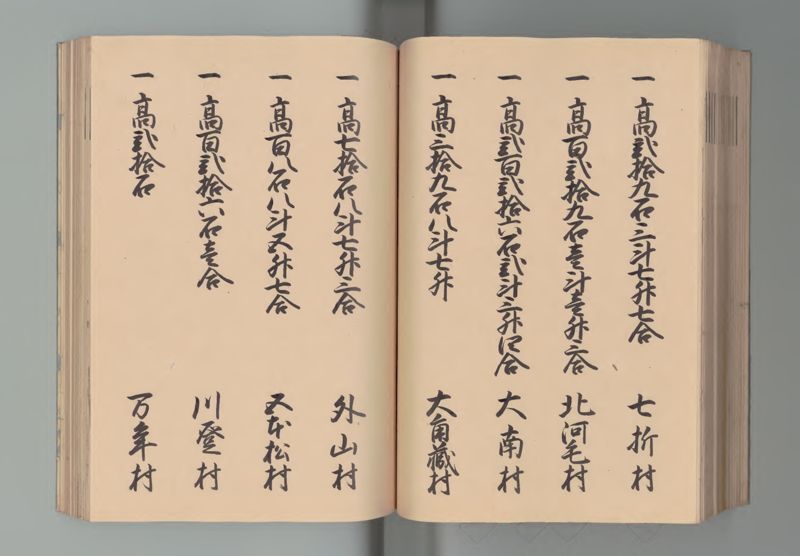 一 高弐拾九石三斗七升七合 七折村
一 高百弐拾九石壱斗壱升三合 北河毛村
一 高弐百弐拾六石弐斗三升四合 大南村
一 高三拾九石八斗七升 大角蔵村
一 高七拾石八斗七升三合 外山村
一 高百八石八斗五升七合 五本松村
一 高百弐拾六石壱合 川登村
一 高弐拾石 万年村